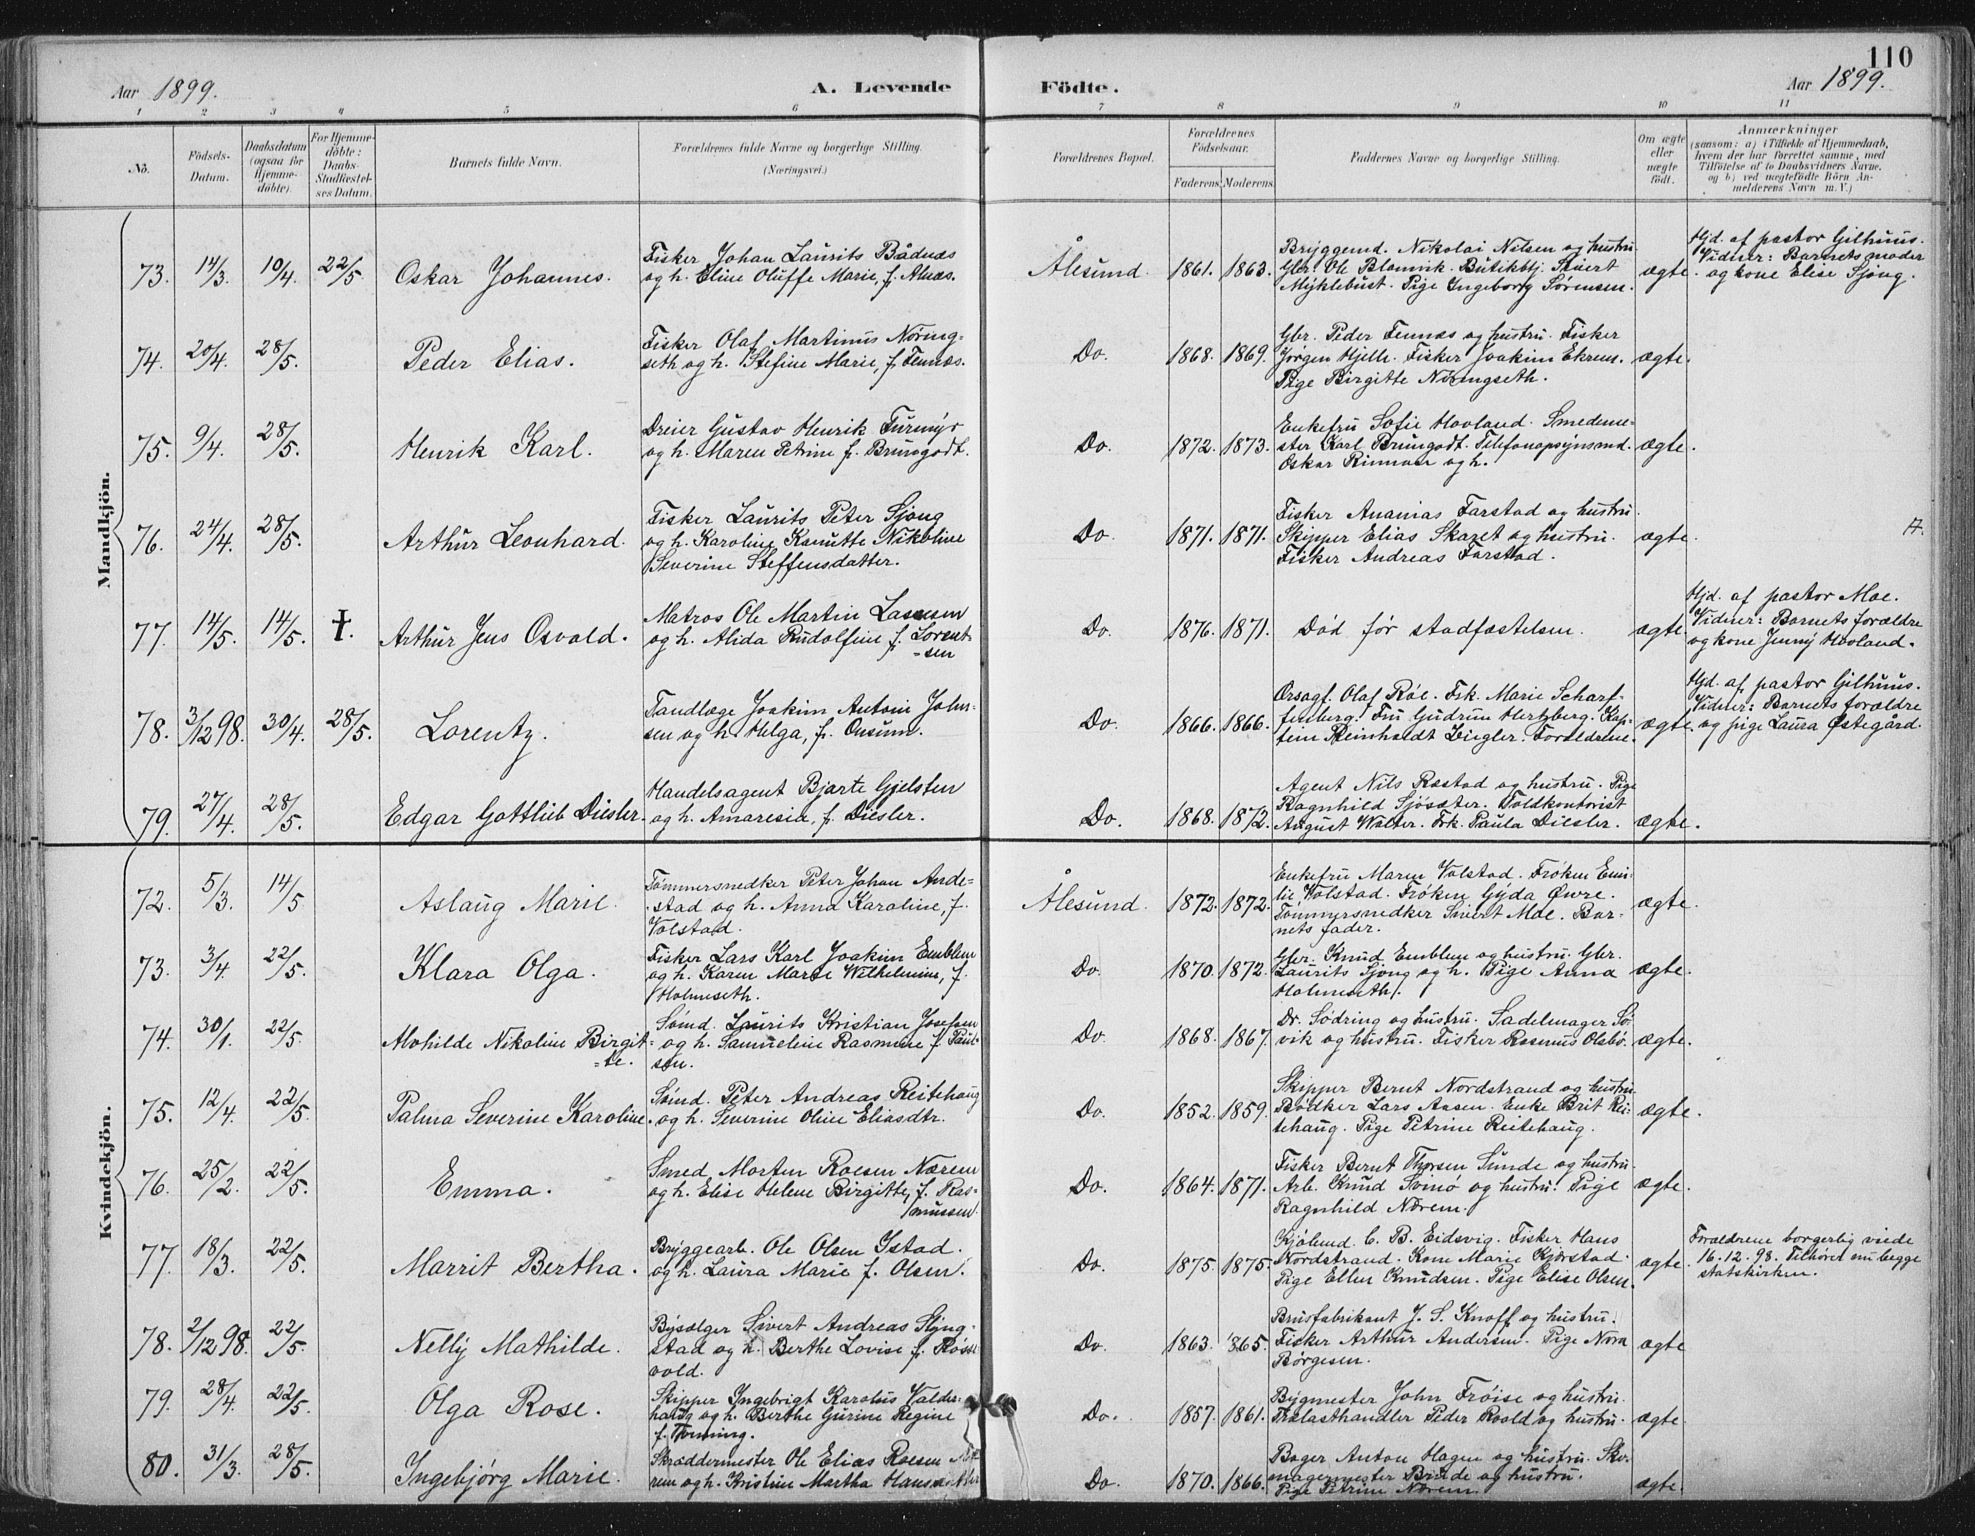 110
Aar 1899. A. Levende Födte. Aar 1899.
1 2 3 4 5 6 7 8 9 10 11
No. Födsels-Datum. Daabsdatum (ogsaa for Hjemme-döbte). For Hjemme-döbte: Daabs-Stadfæstel-ses Datum. Barnets fulde Navn. Forældrenes fulde Navne og borgerlige Stilling. (Næringsvei.) Forældrenes Bopæl. Forældrenes Födselsaar. Faderens. Moderens. Faddernes Navne og borgerlige Stilling. Om ægte eller uægte födt. Anmærkninger
(saasom: a) i Tilfælde af Hjemmedaab, hvem der har forrettet samme, med Tilföielse af to Daabsvidners Navne, og b) ved uægtefödte Börn An-melderens Navn m. V.)
Mandkjön.
73. 14/3. 10/4. 22/5. Oskar Johannes. Fisker Johan Laurits Bådnæs
og h. Eline Oluffe Marie, f. Alnæs.
Ålesund. 1861. 1863. Bryggemd. Nikolai Nilsen og hustru.
Gbr. Ole Blomvik. Butikbtj. Sivert
Myklebust. Pige Ingeborg Sørensen. ægte.
Hjd. af pastor Gilhuus.
Vidner: Barnets moder
og kone Elise Sjong.
74. 20/4. 28/5. Peder Elias. Fisker Olaf Martinus Nøring-
seth og h. Stefine Marie, f. Fennæs.
Do. 1868. 1869. Gbr. Peder Fennæs og hustru. Fisker
Jørgen Hjelle. Fisker Joakim Ekrem.
Pige Birgitte Nøringseth. ægte.
75. 9/4. 28/5. Henrik Karl. Dreier Gustav Henrik Furmyr
og h. Maren Petrine f. Brungodt.
Do. 1872. 1873. Enkefru Sofie Hovland. Smedeme-
ster Karl Brungodt. Telefonopsynsmd.
Oskar Rinnaas og h. ægte.
76. 24/4. 28/5. Arthur Leonhard. Fisker Laurits Peter Sjong
og h. Karoline Kanutte Nikoline
Severine Steffensdatter.
Do. 1871. 1871. Fisker Ananias Farstad og hustru.
Skipper Elias Skaret og hustru.
Fisker Andreas Farstad. ægte.
77. 14/5. 14/5. †. Arthur Jens Osvald. Matros Ole Martin Lassesen
og h. Alida Rudolfine f. Lorent-
=sen
Do. 1876. 1871. Død før stadfæstelsen. ægte.
Hjd. af pastor Moe.
Vidner: Barnets forældre
og kone Jenny Hovland.
78. 3/12 98. 30/4. 28/5. Lorentz. Tandlæge Joakim Antoni John-
sen og h. Helga, f. Onsum.
Do. 1866. 1866. Orsagf. Olaf Røe. Frk. Marie Scharf-
fenberg. Fru Gudrun Hertzberg. Kap-
tein Reinhardt Ziegler. Forældrene. ægte.
Hjd. af pastor Gilhuus.
Vidner: Barnets forældre
og pige Laura Østegård.
79. 27/4. 28/5. Edgar Gottlieb Diesler. Handelsagent Bjarte Gjelsten
og h. Amaresia, f. Diesler.
Do. 1868. 1872. Agent Nils Ræstad og hustru. Pige
Ragnhild Sjøsæter. Toldkontorist
August Walter. Frk. Paula Diesler. ægte.
Kvindekjön.
72. 5/3. 14/5 Aslaug Marie. Tømmersnedker Peter Johan Ande-
stad og h. Anna Karoline, f.
Volstad.
Ålesund. 1872. 1872. Enkefru Maren Volstad. Frøken Emi-
lie Volstad. Frøken Gyda Øwre.
Tømmersnedker Sivert Moe. Bar-
nets fader. ægte.
73. 3/4. 22/5. Klara Olga. Fisker Lars Karl Joakim Emblem
og h. Karen Marie Wilhelmine, f.
Holmeseth.
Do. 1870. 1872. Gbr. Knud Emblem og hustru. Gbr.
Laurits Sjong og h. Pige Anna
Holmeseth. ægte.
74. 30/1. 22/5. Mohilde Nikoline Birgit-
=te. Sømd. Laurits Kristian Josefsen
og h. Samueline Rasmine f. Paul-
sen.
Do. 1868. 1867. Dr. Sødring og hustru. Sadelmager Sø-
vik og hustru. Fisker Rasmus Olsbø. ægte.
75. 12/4. 22/5. Palma Severine Karoline. Sømd. Peter Andreas Reitehaug
og h. Severine Oline Eliasdtr.
Do. 1852. 1859. Skipper Bernt Nordstrand og hustru
Bødker Lars Aasen. Enke Brit Rei-
tehaug. Pige Petrine Reitehaug. ægte.
76. 25/2. 22/5. Emma. Smed Morten Roesen Nærem
og h. Elise Helene Birgitte, f. Ras-
mussen
Do. 1864. 1871. Fisker Bernt Thorsen Sunde og hustru.
Arb. Knud Svinø og hustru. Pige
Ragnhild Nærem. ægte.
77. 18/3. 22/5. Marrit Bertha. Bryggearb. Ole Olsen Ystad.
og h. Laura Marie f. Olsen.
Do. 1875. 1875. Kjølmd. C. B. Eidsvig. Fisker Hans
Nordstrand. Kone Marie Kjærstad.
Pige Ellen Knudsen. Pige Elise Olsen. ægte.
Forældrene borgerlig viede
16.12.98. Tilhører nu begge
statskirken.
78. 2/12 98. 22/5. Nelly Mathilde. Bysælger Sivert Andreas Slyng-
stad og h. Berthe Lovise f. Røsse-
vold.
Do. 1863. 1865. Brusfabrikant J. S. Knoff og hustru.
Fisker Arthur Andersen. Pige Nora
Børgesen. ægte
79. 28/4. 22/5. Olga Rose. Skipper Ingebrigt Karolius Valder-
haug og h. Berthe Gurine Regine
f. Tonning.
Do. 1857. 1861. Bygmester John Frøise og hustru.
Trælasthandler Peder Roald og hustru. ægte.
80. 31/3. 28/5. Ingebjørg Marie. Skræddermester Ole Elias Roesen Næ-
rem og h. Kristine Martha Hansdatter
Do. 1870. 1866. Bager Anton Hagen og hustru. Sko-
magermester Brude og hustru.
Pige Petrine Nærem. ægte.